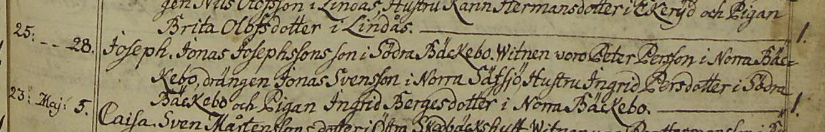 gon Nils Olofsson i Lindås, Hustru Karin Hermansdotter i Ekeryd och Pigan
Brita Olofsdotter i Lindås. 1.
25: 28. Joseph. Jonas Josephssons son i Södra Bäckebo. Witnen voro Peter Persson i Norra Bäc-
kebo, drängen Jonas Svensson i Norra Säfsjö Hustru Ingrid Persdotter i Södra
23: Maj: 5. Bäckebo och Pigan Ingrid Bergesdotter i Norra Bäckebo. 1.
Caisa. Sven Mårtenssons dotter i Witnen